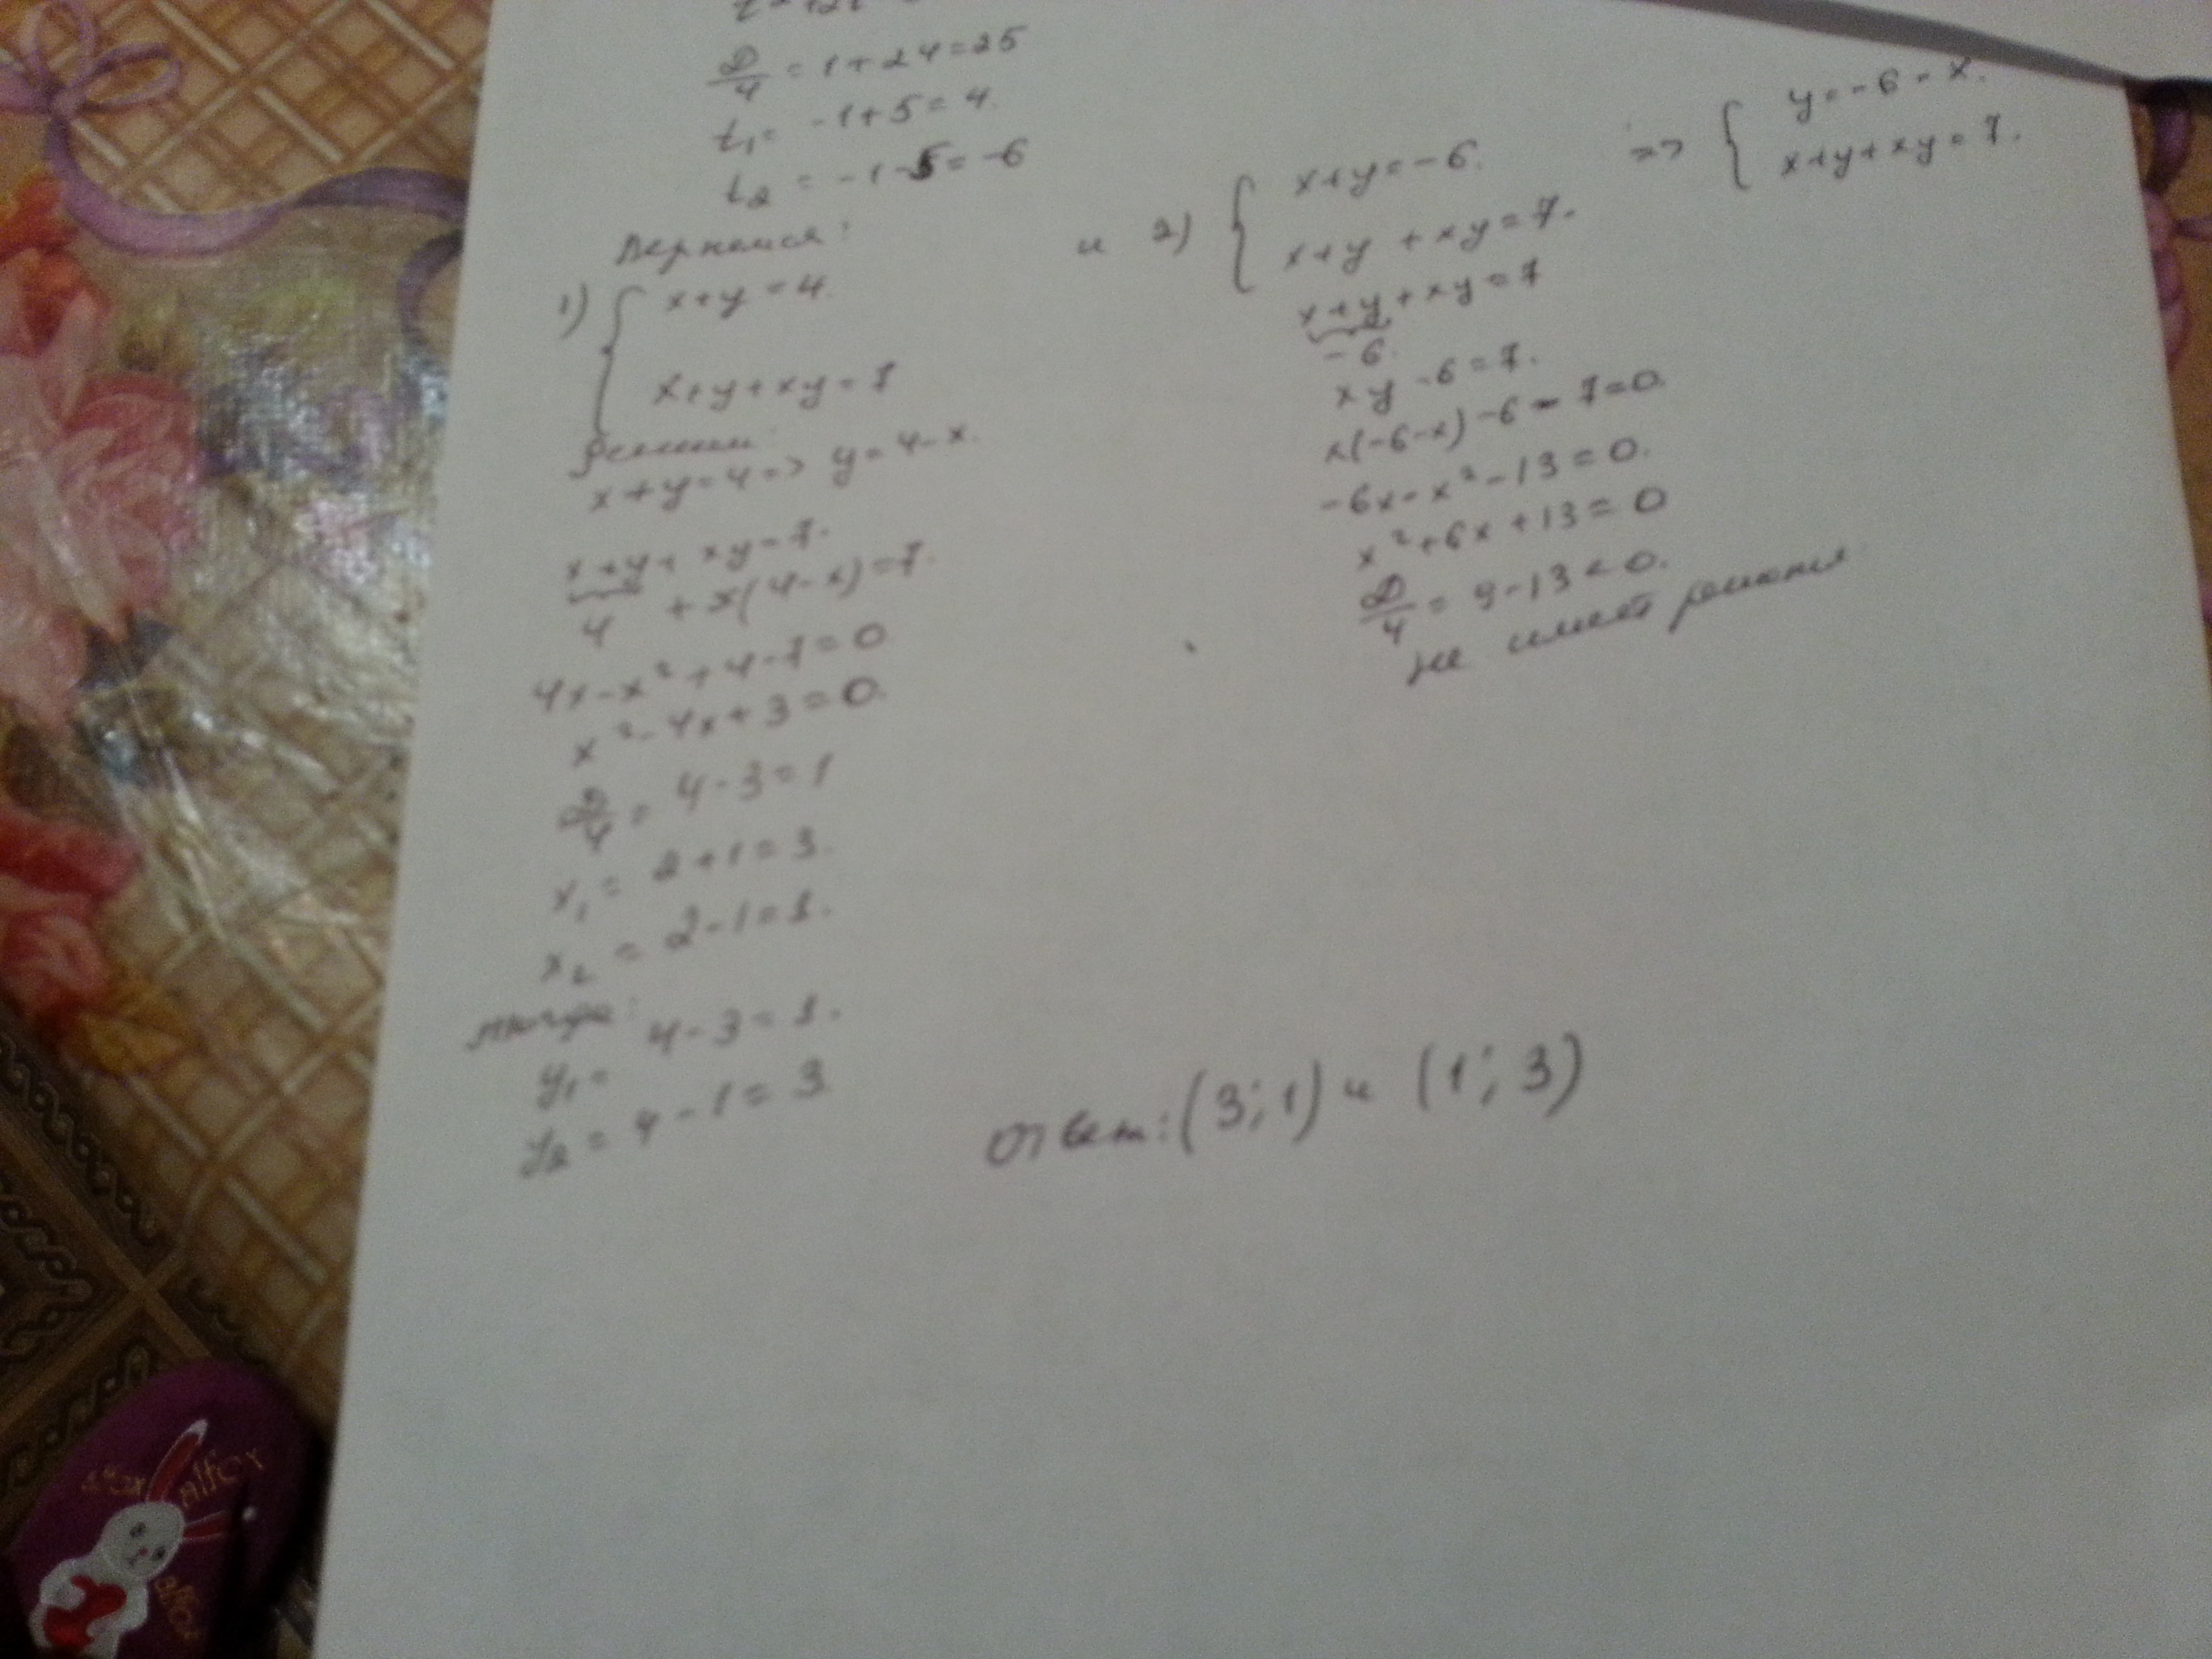 D/4 = 1+24=25
t₁= -1+5=4.
t₂ = -1-5=-6
Вернемся:
1) { x+y=4.
x+y+xy=7
Решим:
x+y=4=> y=4-x.
x+y+xy=7.
4 +x(4-x)=7.
4x-x²+4-7=0
x²-4x+3=0.
D/4 = 4-3=1
x₁= 2+1=3.
x₂ = 2-1=1.
тогда:
y₁= 4-3=1.
y₂=4-1=3
и 2) { x+y=-6.
x+y+xy=7.
=> { y=-6-x.
x+y+xy=7.
x+y+xy=7
-6.
xy-6=7.
x(-6-x)-6-7=0.
-6x-x²-13=0.
x²+6x+13=0
D/4 = 9-13<0.
не имеет решения
Ответ: (3;1) и (1;3)
alfox